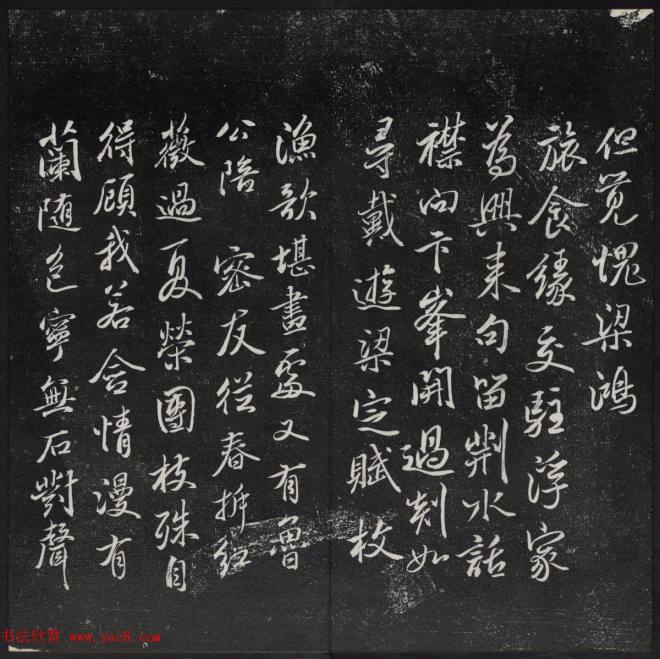 但覺愧梁鴻
旅食緣交駐浮家
為興來句留荆水話
襟向卞峯開過剡如
尋戴遊梁定賦枚
漁歌堪畫處又有魯
公陪 密友從春拆紅
薇過夏榮團枝殊自
得顧我若含情漫有
蘭随色寧無石對聲
书法欣赏 www.yac8.com